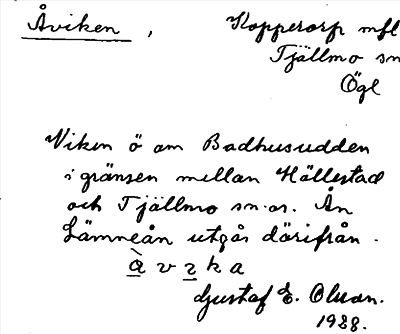 Åviken, Kopperorp mfl
Tjällmo sn
Ögl
Viken ö om Badhusudden
i gränsen mellan Hällestad
och Tjällmo sn.ar. Ån
Lämneån utgår därifrån.
à v ɩ k a
Gustaf E. Olsson.
1928.